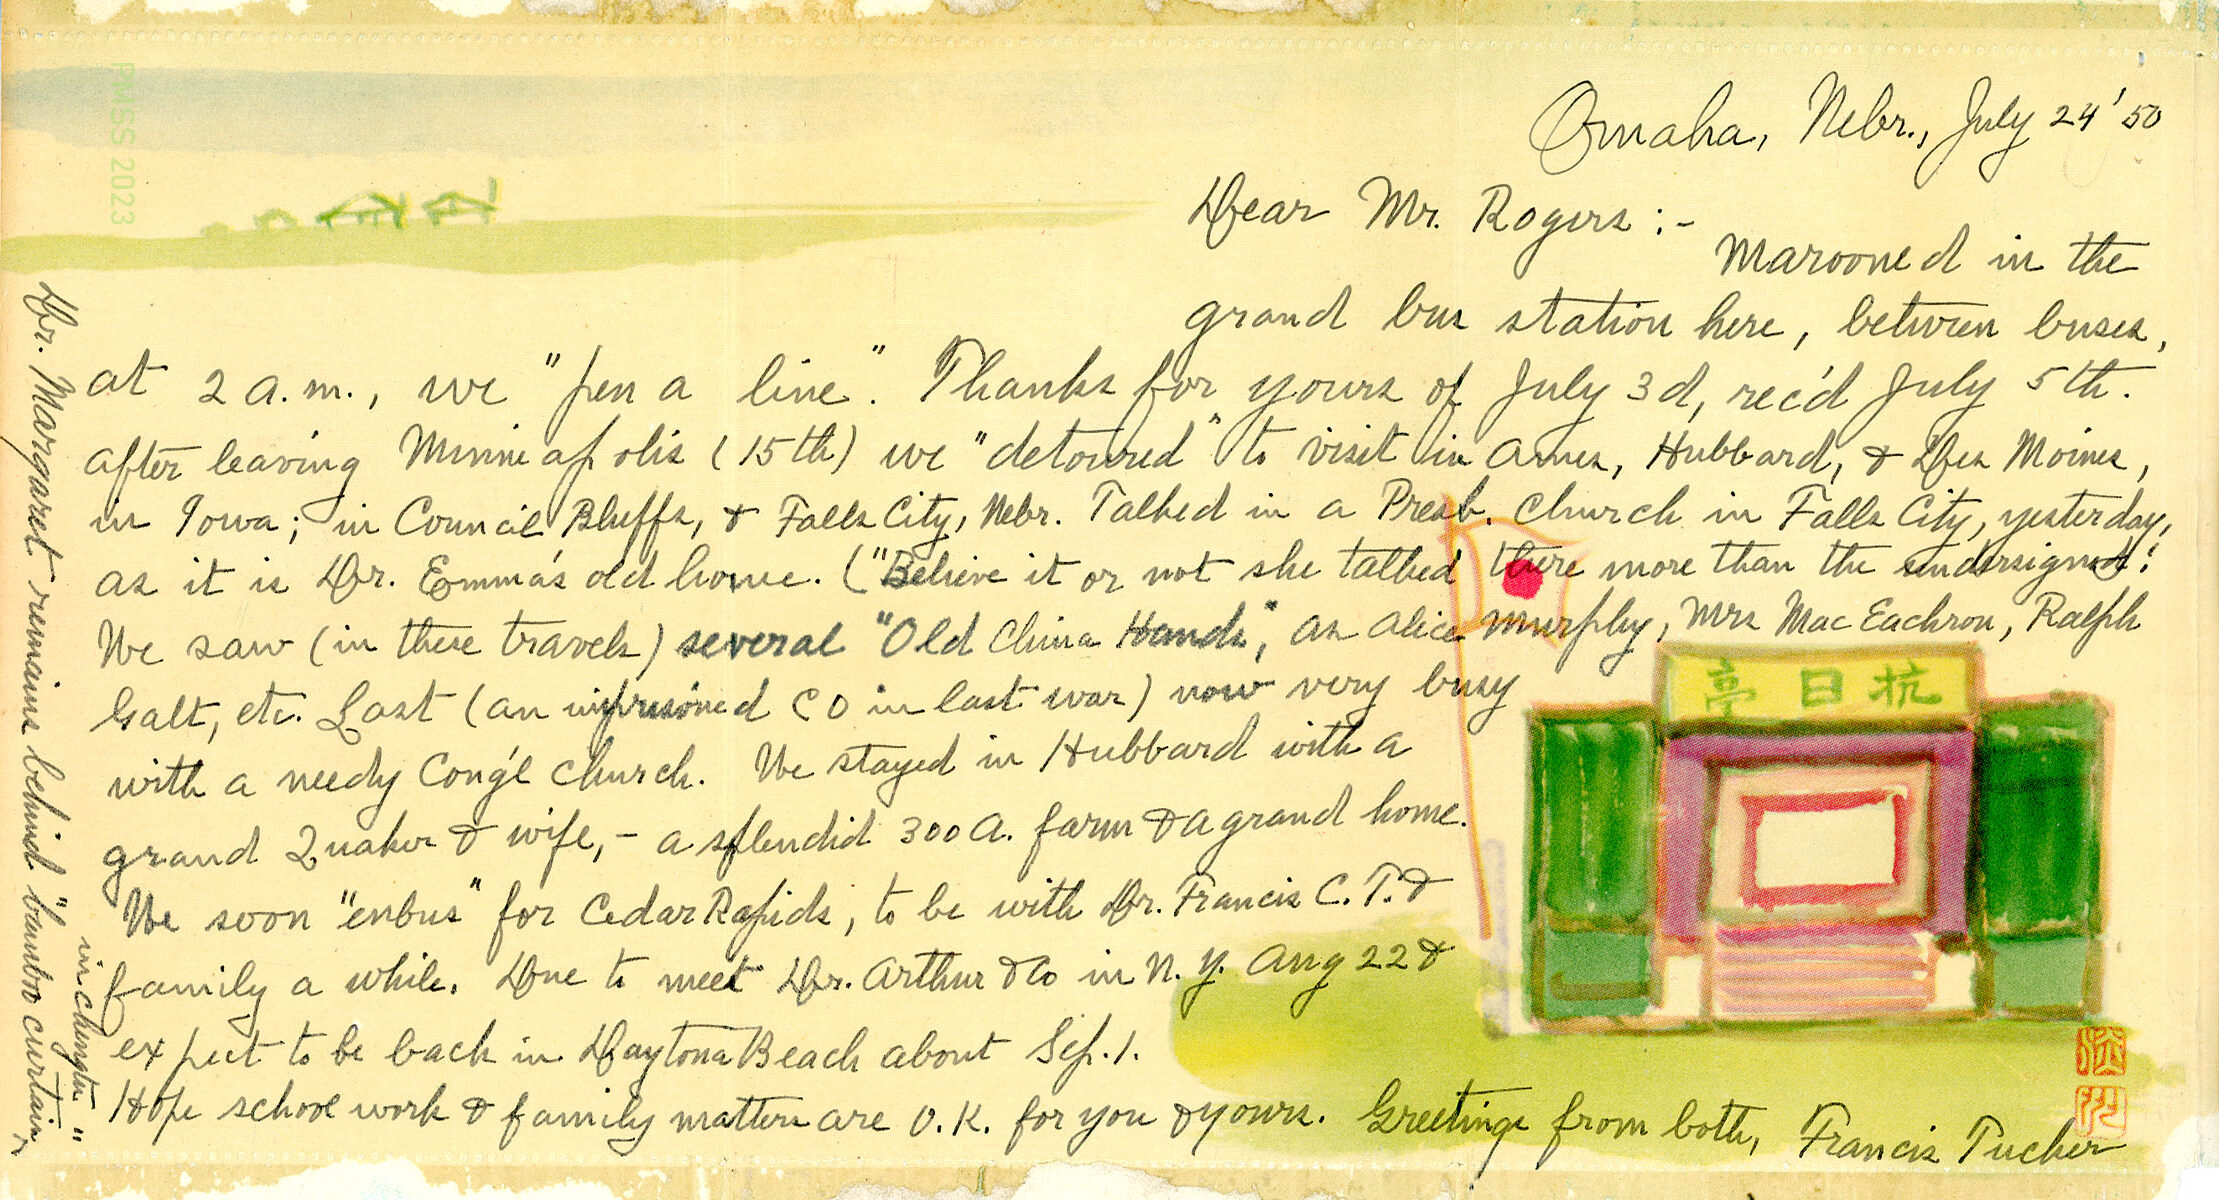 PMSS 2023
Omaha, Nebr., July 24 '50
Dear Mr. Rogers :-
Marooned in the
grand bus station here, between buses,
at 2 a.m., we "pen a line". Thanks for yours of July 3d, rec'd July 5th.
After leaving Minneapolis (15th) we "detoured" to visit in Ames, Hubbard, & Des Moines,
in Iowa; in Council Bluffs, & Falls City, Nebr. Talked in a Presb. Church in Falls City, yesterday,
as it is Dr. Emma's old home. ("Believe it or not she talked there more than the undersigned!
We saw (in these travels) several "Old China Hands", as Alice Murphy, Mrs MacEachron, Ralph
Galt, etc. Last (an imprisoned CO in last war) now very busy
with a needy Cong'l Church. We stayed in Hubbard with a
grand Quaker & wife, - a splendid 300 A. farm & a grand home.
We soon "enbus" for Cedar Rapids, to be with Dr. Francis C. T. &
family a while. Due to meet Dr. Arthur & Co in N. Y. Aug 22 &
expect to be back in Daytona Beach about Sep. 1.
Hope school work & family matters are O.K. for you & yours. Greetings from both, Francis Tucker
Dr. Margaret remains behind "bamboo curtain,
in Chengtu"
抗日亭